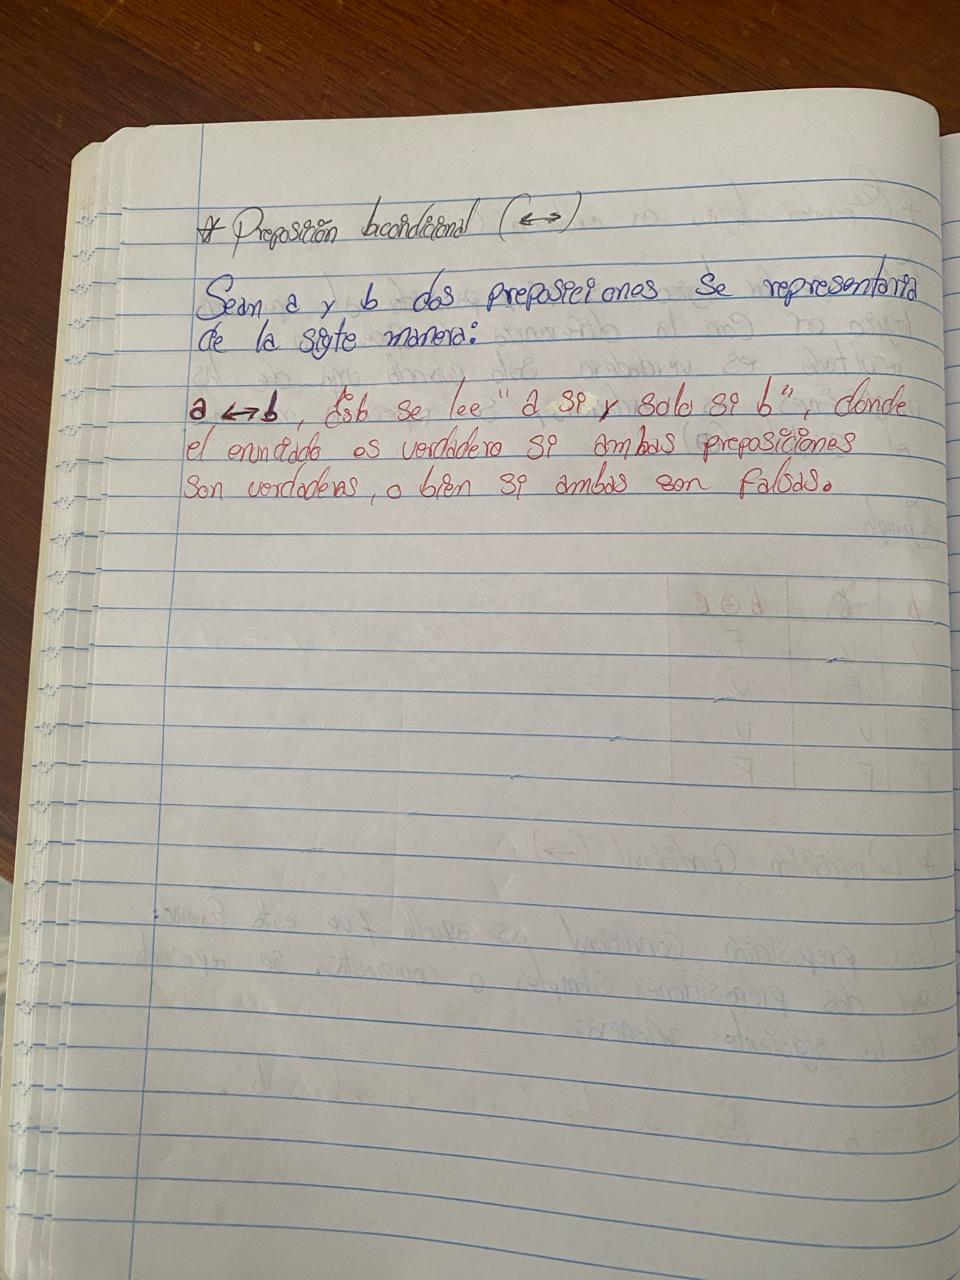 * Preposición bicondicional (↔)
Sean a y b dos preposiciones se representaria
de la sigte manera:
a ↔ b, esto se lee "a si y solo si b", donde
el enunciado es verdadero si ambas preposiciones
son verdaderas, o bien si ambas son falsas.